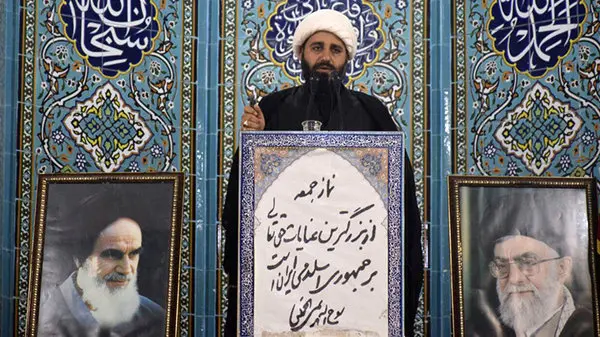 الحمد لله
سبحان الله
نماز جمعه
از بزرگترین عنایات حق تعالی
بر جمهوری اسلامی ایران است
روح الله الموسوی الخمینی